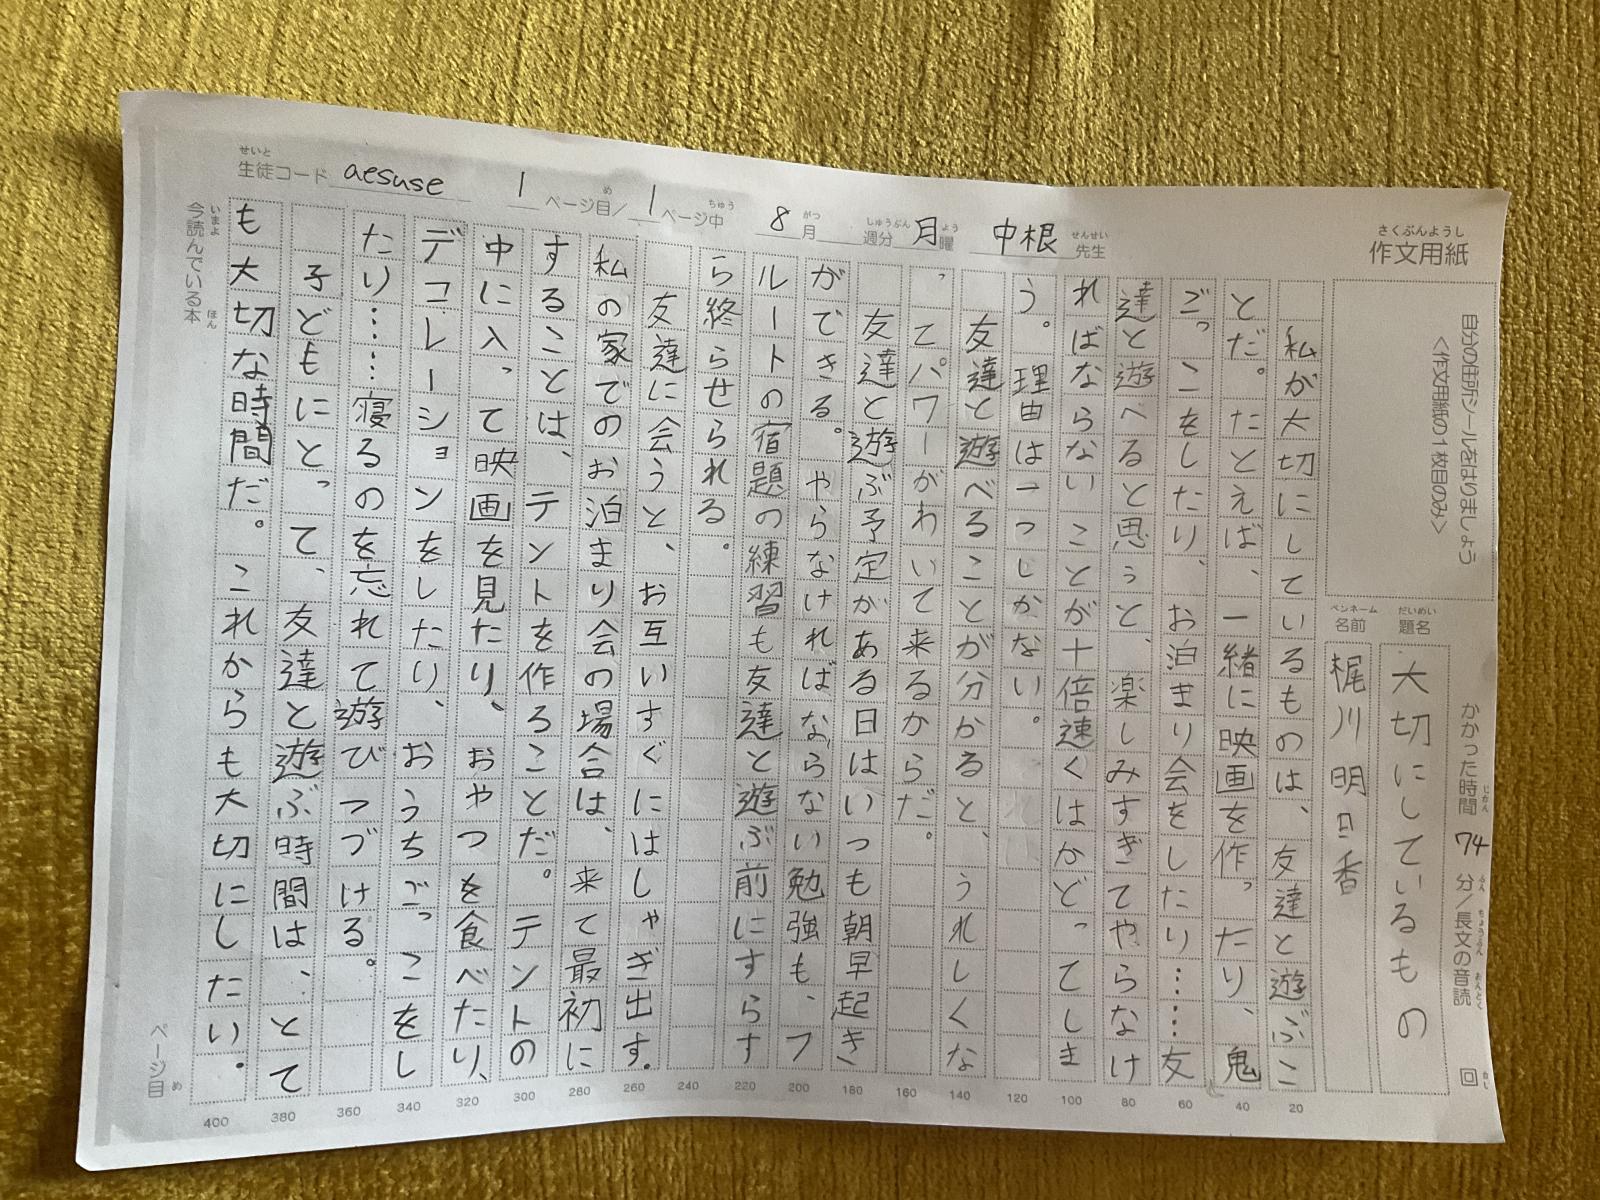 作文用紙
さくぶんようし
自分の住所シールをはりましょう
<作文用紙の1枚目のみ>
生徒コード aesuse 1ページ目/1ページ中 8月 週分 月曜 中根先生
せいと め ちゅう がつ しゅうぶん よう せんせい
かかった時間 74分/長文の音読 回
じかん ふん ちょうぶん おんどく かい
題名 大切にしているもの
だいめい
名前 梶川明日香
ペンネーム
私が大切にしているものは、友達と遊ぶこ
とだ。たとえば、一緒に映画を作ったり、鬼
ごっこをしたり、お泊まり会をしたり……友
達と遊べると思うと、楽しみすぎてやらなけ
ればならないことが十倍速くはかどってしま
う。理由は一つしかない。
友達と遊べることが分かると、うれしくな
ってパワーがわいて来るからだ。
友達と遊ぶ予定がある日はいつも朝早起き
ができる。やらなければならない勉強も、フ
ルートの宿題の練習も友達と遊ぶ前にすらす
ら終らせられる。
友達に会うと、お互いすぐにはしゃぎ出す。
私の家でのお泊まり会の場合は、来て最初に
することは、テントを作ることだ。テントの
中に入って映画を見たり、おやつを食べたり、
デコレーションをしたり、おうちごっこをし
たり……寝るのを忘れて遊びつづける。
子どもにとって、友達と遊ぶ時間は、とて
も大切な時間だ。これからも大切にしたい。
20
40
60
80
100
120
140
160
180
200
220
240
260
280
300
320
340
360
380
400
今読んでいる本
いまよ ほん
ページ目
め